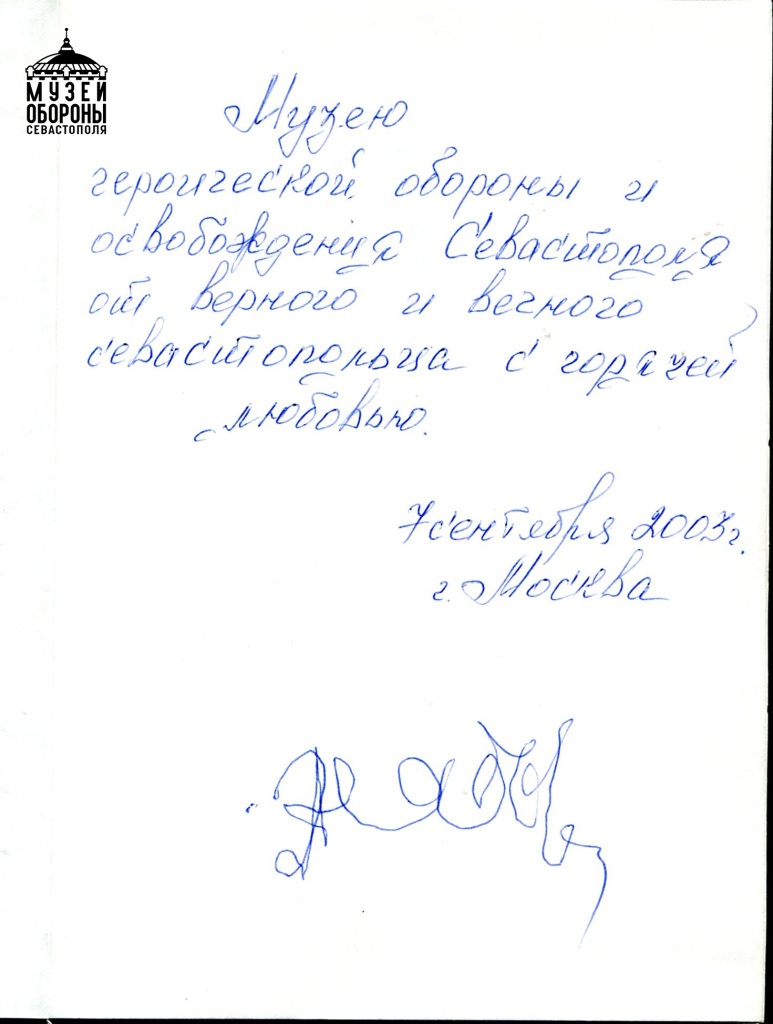 МУЗЕЙ
ОБОРОНЫ
СЕВАСТОПОЛЯ
Музею
героической обороны и
освобождения Севастополя
от верного и вечного
севастопольца с горячей
любовью.
7 сентября 2003 г.
г. Москва